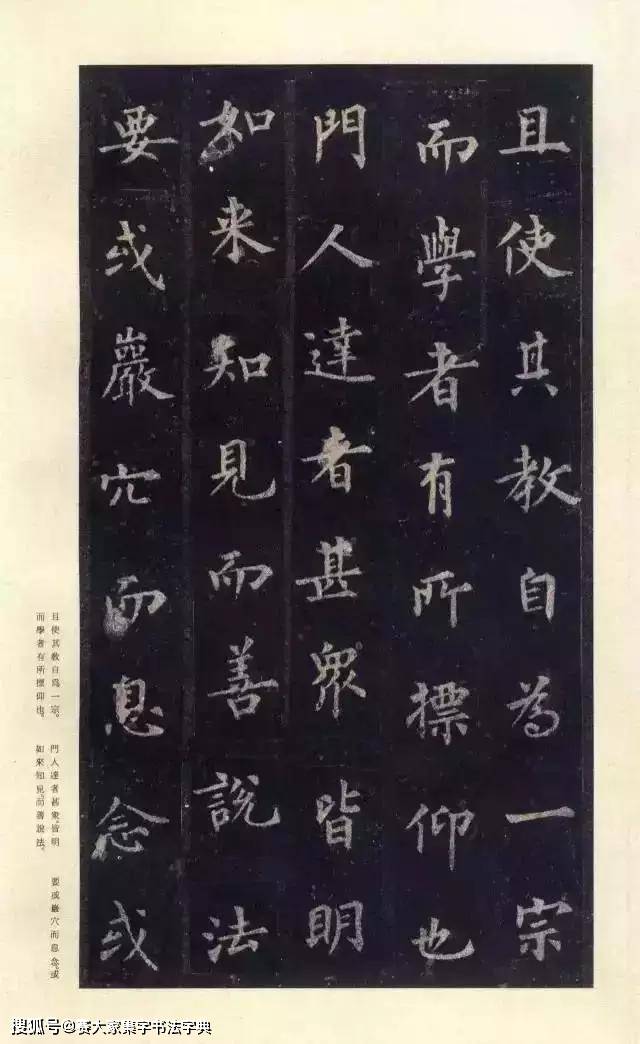 且使其教自為一宗
而學者有所標仰也
門人達者甚眾皆明
如来知見而善說法
要或巖穴而息念或
且使其教自為一宗。
而學者有所標仰也。
門人達者甚衆。皆明
如來知見。而善說法。
要或巖穴而息念。或
搜狐号@赛大家集字书法字典